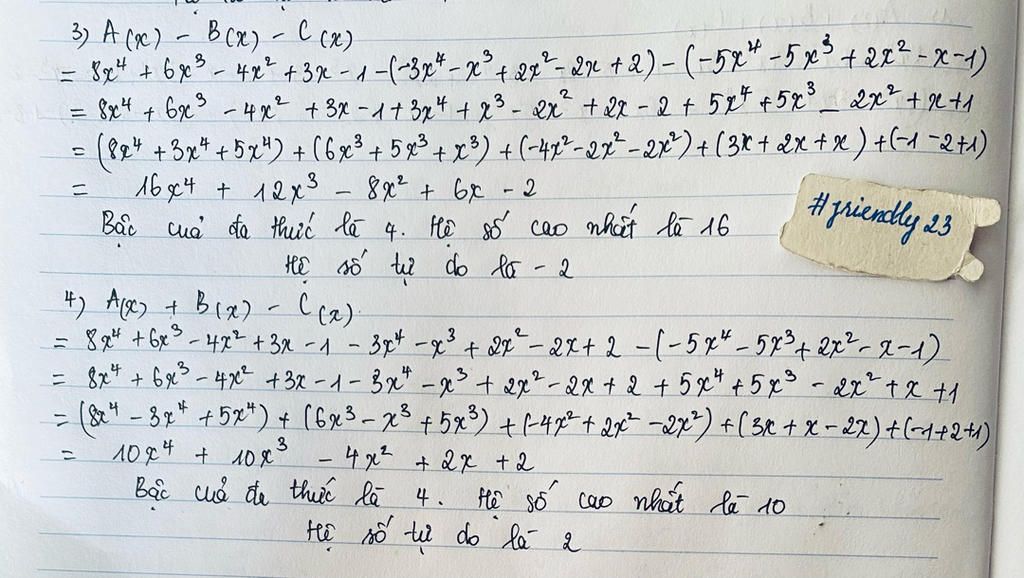 3) A(x) - B(x) - C(x)
= 8x⁴ + 6x³ - 4x² + 3x - 1 - (-3x⁴ - x³ + 2x² - 2x + 2) - (-5x⁴ - 5x³ + 2x² - x - 1)
= 8x⁴ + 6x³ - 4x² + 3x - 1 + 3x⁴ + x³ - 2x² + 2x - 2 + 5x⁴ + 5x³ - 2x² + x + 1
= (8x⁴ + 3x⁴ + 5x⁴) + (6x³ + 5x³ + x³) + (-4x² - 2x² - 2x²) + (3x + 2x + x) + (-1 - 2 + 1)
= 16x⁴ + 12x³ - 8x² + 6x - 2
Bậc của đa thức là 4. Hệ số cao nhất là 16
Hệ số tự do là - 2
#friendly 23
4) A(x) + B(x) - C(x)
= 8x⁴ + 6x³ - 4x² + 3x - 1 - 3x⁴ - x³ + 2x² - 2x + 2 - (-5x⁴ - 5x³ + 2x² - x - 1)
= 8x⁴ + 6x³ - 4x² + 3x - 1 - 3x⁴ - x³ + 2x² - 2x + 2 + 5x⁴ + 5x³ - 2x² + x + 1
= (8x⁴ - 3x⁴ + 5x⁴) + (6x³ - x³ + 5x³) + (-4x² + 2x² - 2x²) + (3x + x - 2x) + (-1 + 2 + 1)
= 10x⁴ + 10x³ - 4x² + 2x + 2
Bậc của đa thức là 4. Hệ số cao nhất là 10
Hệ số tự do là 2